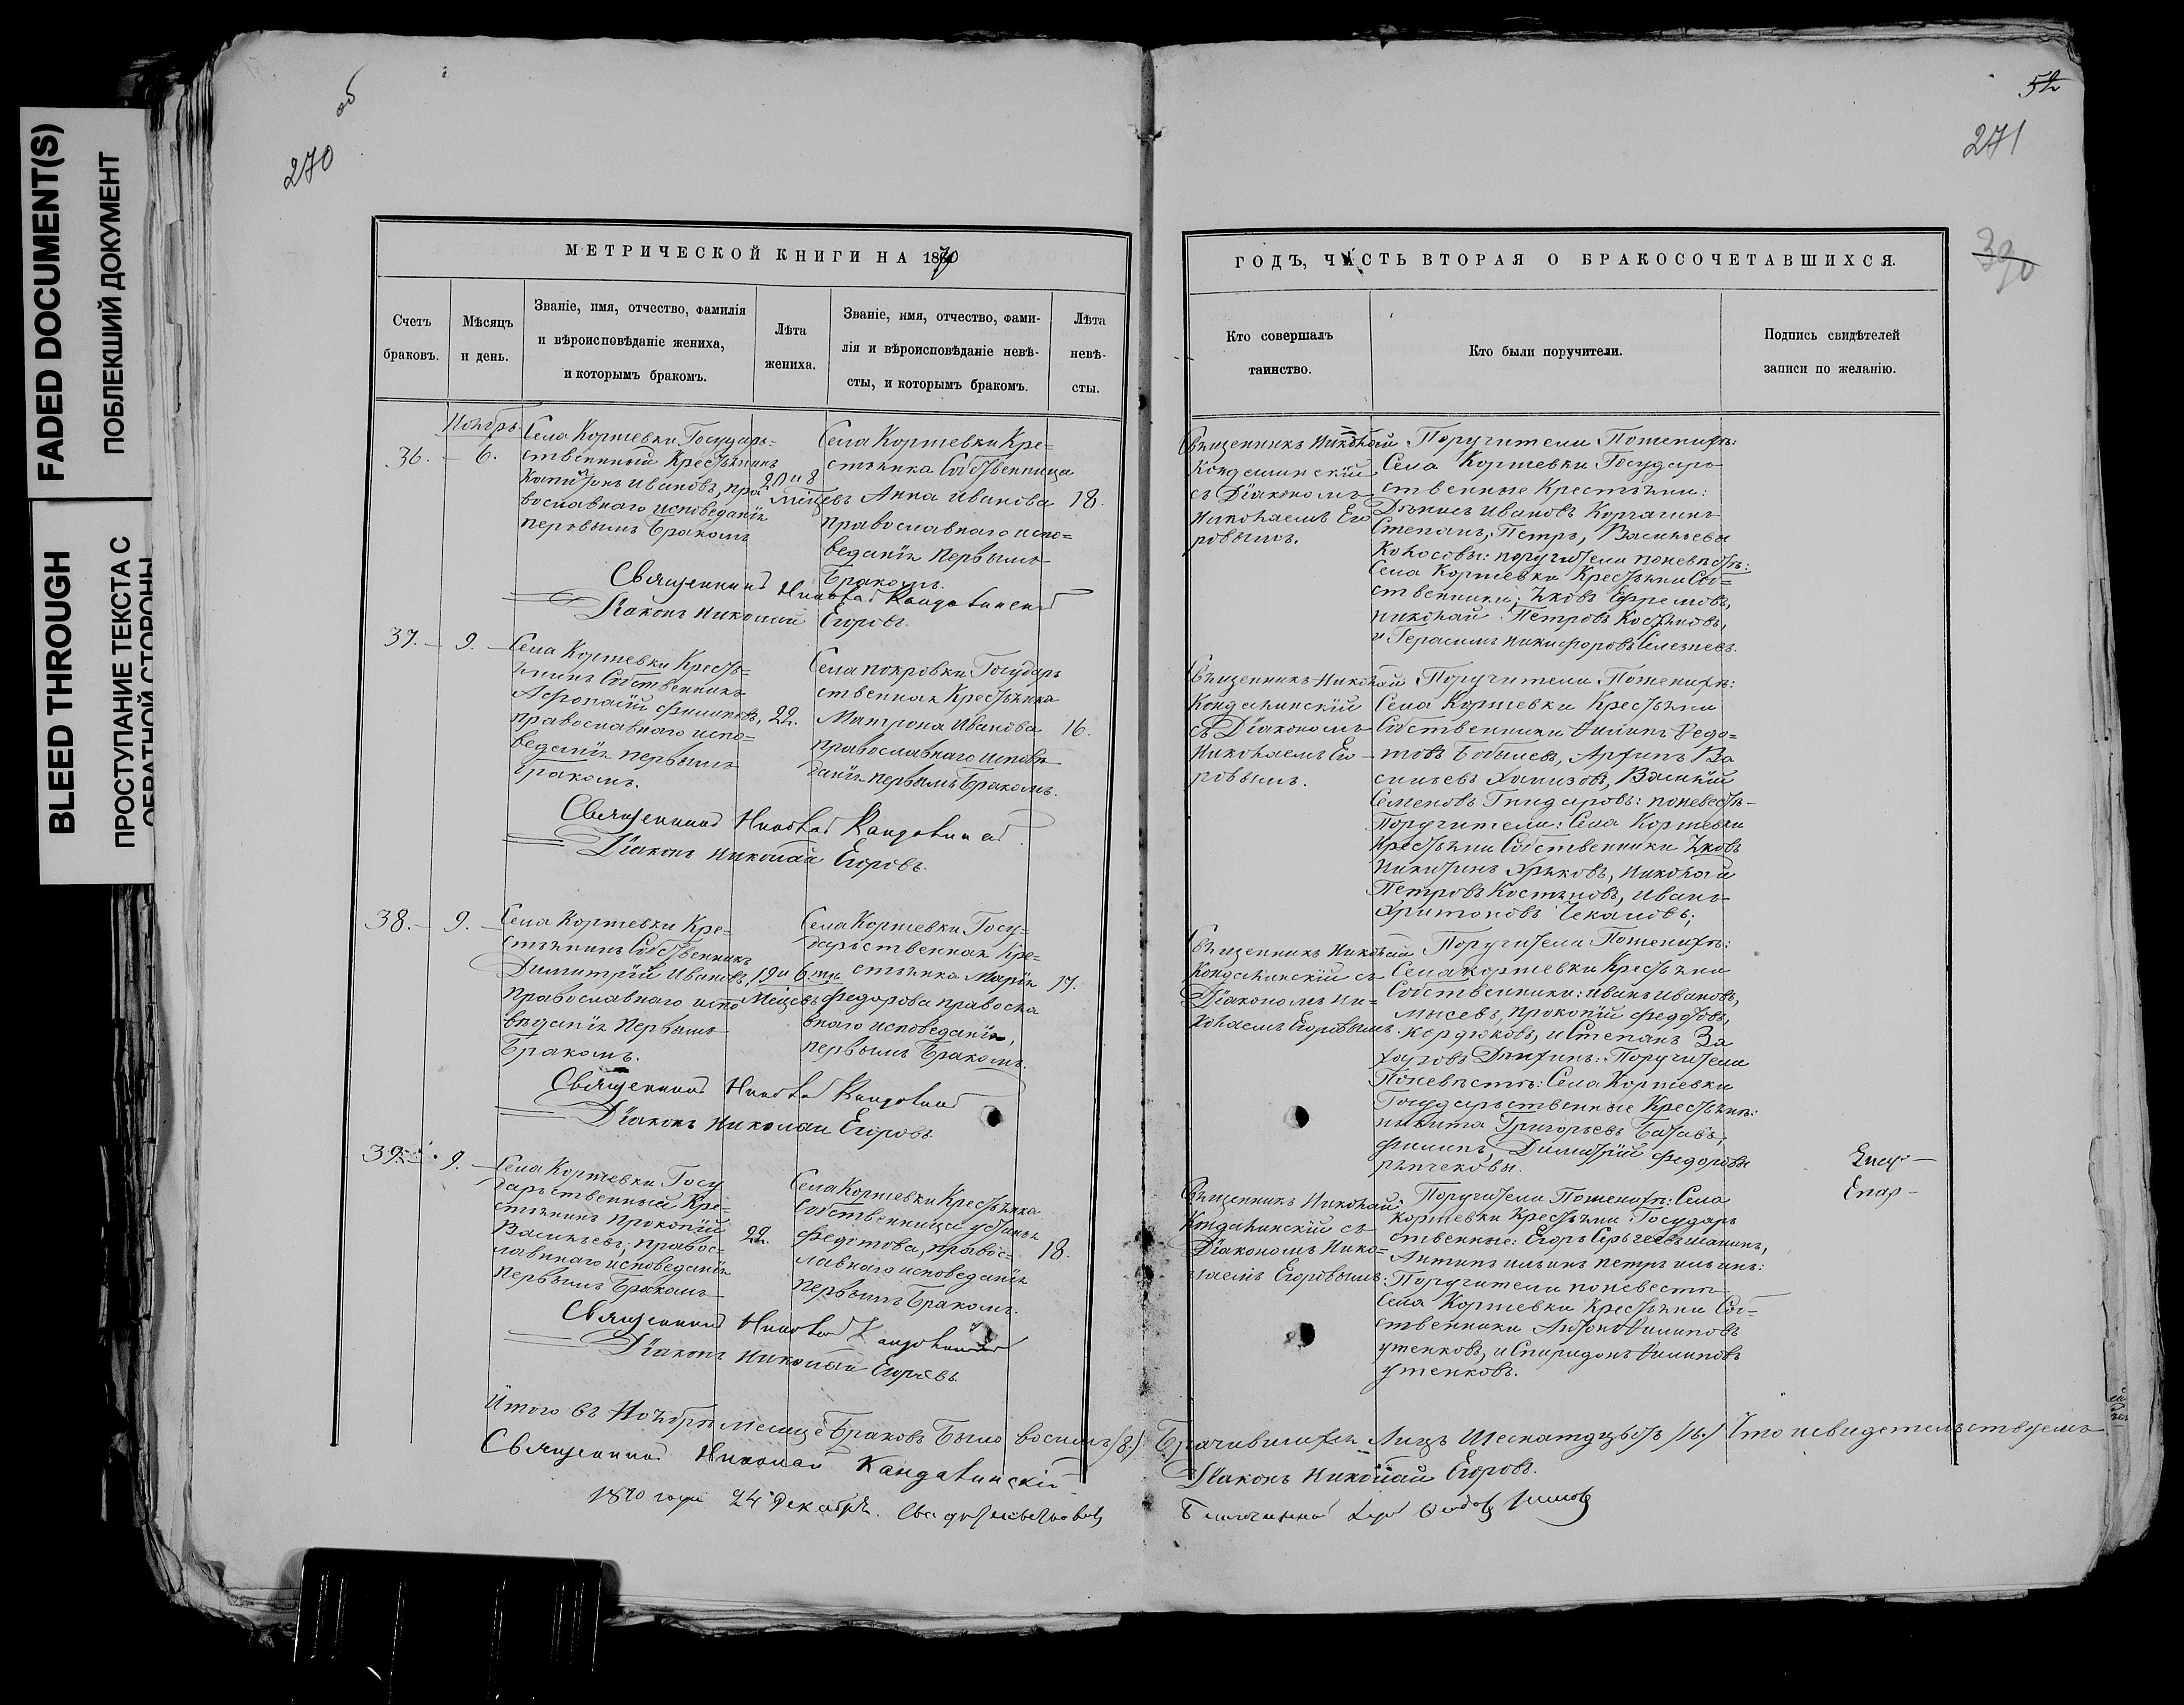 FADED DOCUMENT(S)
ПОБЛЕКШИЙ ДОКУМЕНТ
BLEED THROUGH
ПРОСТУПАНИЕ ТЕКСТА С
ОБРАТНОЙ СТОРОНЫ
об
270
МЕТРИЧЕСКОЙ КНИГИ НА 1870
Счетъ браковъ.
Мѣсяцъ и день.
Званіе, имя, отчество, фамилія
и вѣроисповѣданіе жениха,
и которымъ бракомъ.
Лѣта жениха.
Званіе, имя, отчество, фами-
лія и вѣроисповѣданіе невѣ-
сты, и которымъ бракомъ.
Лѣта невѣ-сты.
Ноябрь
36. 6.
Села Коржевки Государ=
ственный Крестьянинъ
Капитонъ Ивановъ, пра
вославнаго исповеданія
первымъ Бракомъ
20 и 8
Міцевъ
Села Коржевки Кре=
стьянка Собственница
Анна Иванова
православнаго испо=
веданія первымъ
Бракомъ.
18.
Священникъ Николай
Діаконъ Николай Егоровъ.
37. 9.
Села Коржевки Кресть=
янинъ Собственникъ
Афонасій Филиповъ,
православнаго испо=
веданія первымъ
Бракомъ.
22.
Села Покровки Государ
ственная Крестьянка
Матрона Иванова
православнаго исповѣ
данія первымъ Бракомъ.
16.
Священникъ Николай
Діаконъ Николай Егоровъ.
38. 9.
Села Коржевки Кре=
стьянинъ Собственникъ
Димитрій Ивановъ,
Православнаго испо
вѣданія Первымъ
Бракомъ.
19 и 6.ти
Міцевъ
Села Коржевки Госу=
дарственная Кре=
стьянка Марія
Федорова правосла
внаго исповеданія,
первымъ Бракомъ.
17.
Священникъ Николай
Діаконъ Николай Егоровъ
39. 9.
Села Коржевки Госу
дарственный Кре=
стьянинъ Прокопій
Васильевъ; правос=
лавнаго исповеданія
Первымъ Бракомъ
22.
Села Коржевки Крестьянка
Собственница
Федотова, правос=
лавнаго исповеданія
Первымъ Бракомъ.
18.
Священникъ Николай
Діаконъ Николай Егоровъ.
Итого въ Ноябрѣ месяцѣ Браковъ Было восимь /8./
Священникъ Николай
1870 года 24 Декабря.
52
271
390
ГОДЪ, ЧАСТЬ ВТОРАЯ О БРАКОСОЧЕТАВШИХСЯ.
Кто совершалъ таинство.
Кто были поручители.
Подпись свидѣтелей записи по желанію.
Священникъ Николай
съ Діакономъ
Николаемъ Его
ровымъ.
Поручители Поженихѣ:
Села Коржевки Государ
ственные Крестьяни:
Ивановъ
Степанъ, Петръ, Васильевы
Колосовы: поручители поневѣстѣ:
Села Коржевки Крестьяни Соб=
ственники: Яковъ Ефремовъ,
Николай Петровъ Костяновъ,
и Герасимъ Никифоровъ Селезневъ.
Священникъ Николай
съ Діакономъ
Николаемъ Его
ровымъ.
Поручители Поженихѣ:
Села Коржевки Крестьяни
Собственники Филипъ Федо=
товъ Бобылевъ, Архипъ Ва
сильевъ Василій
Семеновъ поневестѣ
Поручители: Села Коржевки
Крестьяни Собственники Яковъ
Никитинъ Николай
Петровъ Костяновъ, Иванъ
Харитоновъ Чекановъ;
Священникъ Николай
съ
Діакономъ Ни=
колаемъ Егоровымъ.
Поручители Поженихѣ:
Села Коржевки Крестьяни
Собственники: Иванъ Ивановъ,
Прокопій Федотовъ,
Кердюковъ, и Степанъ За
харовъ Поручители
Поневѣстѣ: Села Коржевки
Государственные Крестьяни:
Никита Григорьевъ
Филипъ, Димитрій Федоровы
Священникъ Николай
съ
Діакономъ Нико=
лаемъ Егоровымъ.
Поручители Поженихѣ: Села
Коржевки Крестьяни Государ
ственные: Егоръ Сергеевъ
Антипъ Ильинъ Петръ Ильинъ:
Поручители поневестѣ
Села Коржевки Крестьяни Соб=
ственники Антонъ Филиповъ
Утенковъ, и Спиридонъ Филиповъ
Утенковъ.
Брачившихся Лицъ Шеснатцать /16./ Что исвидетельствуемъ
Діаконъ Николай Егоровъ.